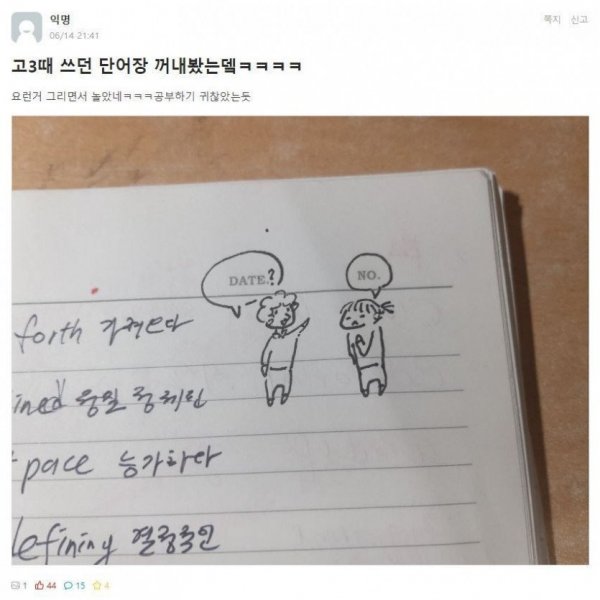 익명
06/14 21:41
쪽지 신고
고3때 쓰던 단어장 꺼내봤는뎈ㅋㅋㅋㅋ
요런거 그리면서 놀았네ㅋㅋㅋ공부하기 귀찮았는듯
DATE.?
NO.
forth 가져오다
ined
pace 능가하다
defining 결정적인
1 44 15 4